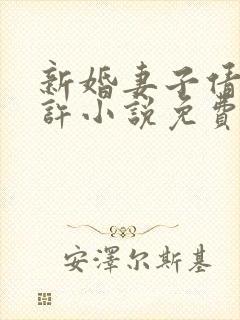 新婚妻子倩
許小説免費
安澤尔斯基